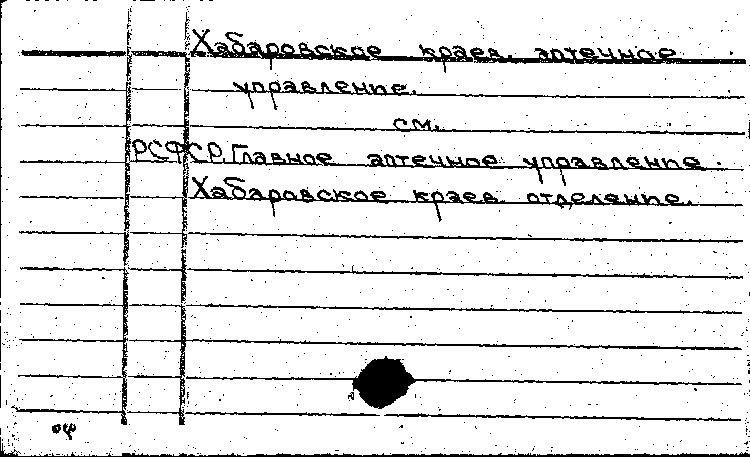 Хабаровское краев. аптечное
управление.
см.
РСФСР. Главное аптечное управление.
Хабаровское краев. отделение.
оф